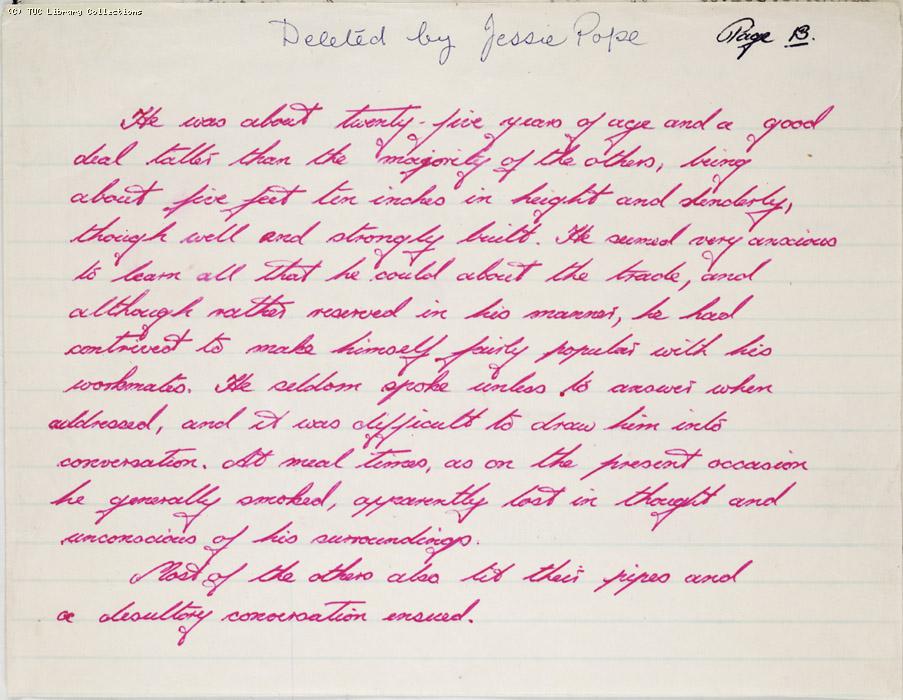 (C) TUC Library Collections
Deleted by Jessie Pope
Page 13.
He was about twenty-five years of age and a good
deal taller than the majority of the others, being
about five feet ten inches in height and slenderly,
though well and strongly built. He seemed very anxious
to learn all that he could about the trade, and
although rather reserved in his manner, he had
contrived to make himself fairly popular with his
workmates. He seldom spoke unless to answer when
addressed, and it was difficult to draw him into
conversation. At meal times, as on the present occasion
he generally smoked, apparently lost in thought and
unconscious of his surroundings.
Most of the others also lit their pipes and
a desultory conversation ensued.